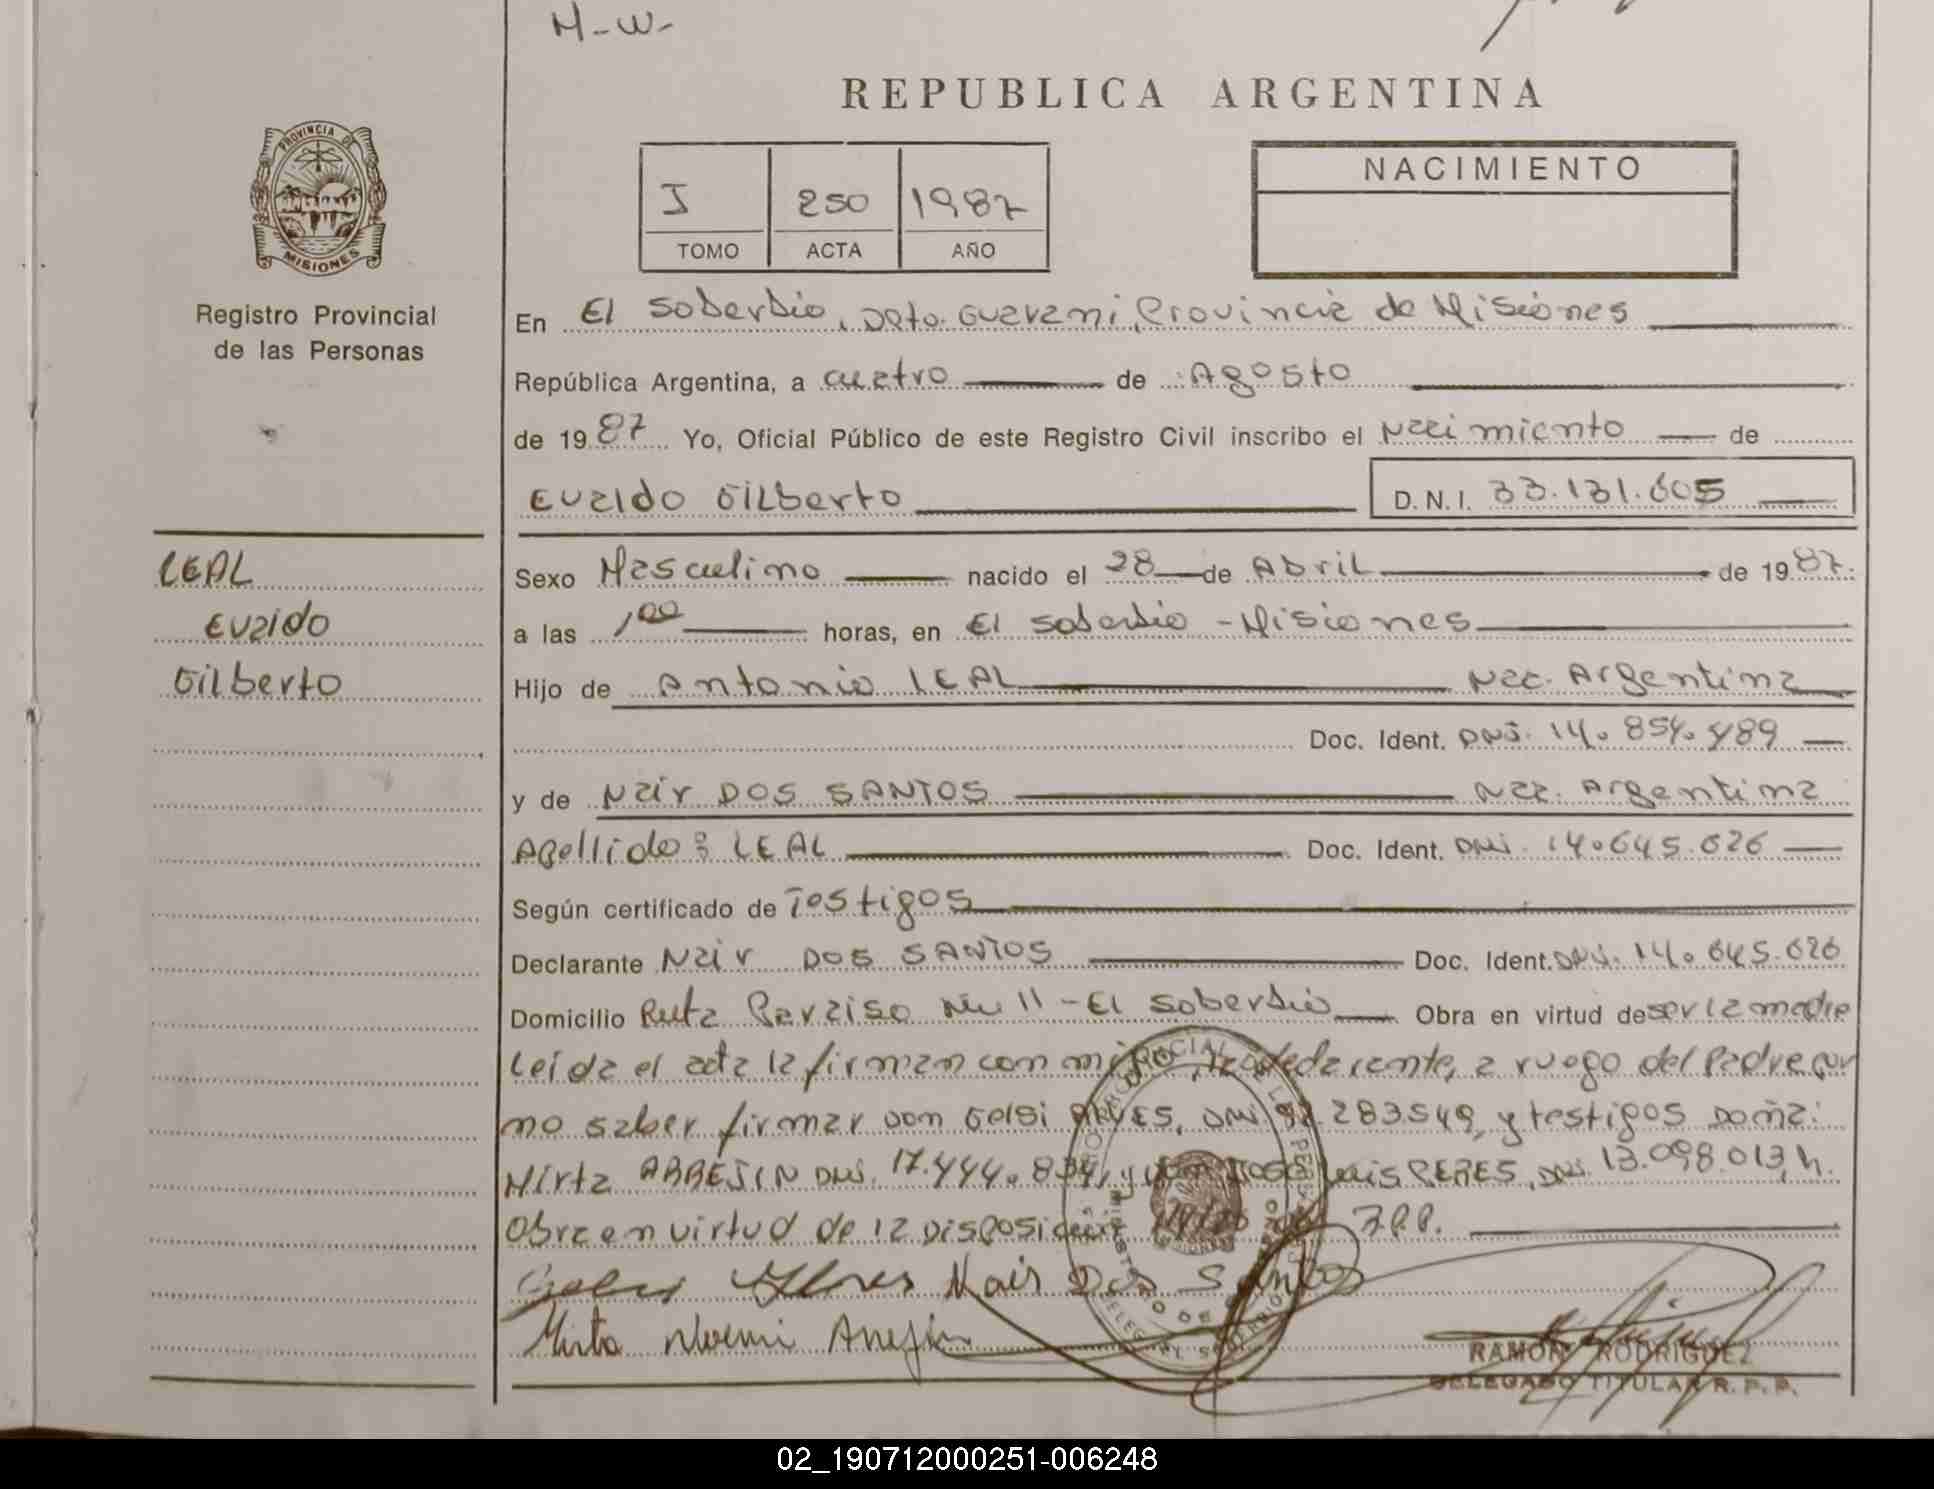 M-W-
REPUBLICA ARGENTINA
PROVINCIA DE
MISIONES
Registro Provincial
de las Personas
I 250 1987
TOMO ACTA AÑO
NACIMIENTO
En El Soberbio, Dpto. Guarani, Provincia de Misiones
República Argentina, a cuatro de Agosto
de 1987 Yo, Oficial Público de este Registro Civil inscribo el Nacimiento de
Euzido Gilberto D.N.I. 33.131.605
LEAL
Euzido
Gilberto
Sexo Masculino nacido el 28 de Abril de 1987.
a las 1,00 horas, en El Soberbio - Misiones
Hijo de Antonio LEAL Nac. Argentina
Doc. Ident. DNI. 14.854.489
y de Nair DOS SANTOS Nac. Argentina
Apellido: LEAL Doc. Ident. DNI. 14.645.626
Según certificado de Testigos
Declarante Nair DOS SANTOS Doc. Ident. DNI. 14.645.626
Domicilio Ruta Paraiso Km 11 - El Soberbio Obra en virtud de ser la madre
Leída el acta la firman conmigo, la declarante, a ruego del Padre por
no saber firmar don Gelsi DNI 92.283549, y testigos Doña:
Mirta ARREJIN DNI. 17.444.834, y don José Luis PERES, DNI. 13.098.013, h.
Obra en virtud de la Disposición R.P.P.
Nair Dos Santos
Mirta Noemi Arrejin
RAMON RODRIGUEZ
DELEGADO TITULAR R. P. P.
02_190712000251-006248